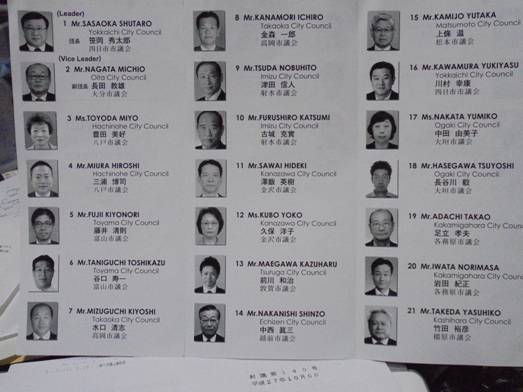 (Leader)
1 Mr.SASAOKA SHUTARO
Yokkaichi City Council
笹岡 秀太郎
四日市市議会
(Vice Leader)
2 Mr.NAGATA MICHIO
Oita City Council
副団長 長田 教雄
大分市議会
3 Ms.TOYODA MIYO
Hachinohe City Council
豊田 美好
八戸市議会
4 Mr.MIURA HIROSHI
Hachinohe City Council
三浦 博司
八戸市議会
5 Mr.FUJII KIYONORI
Toyama City Council
藤井 清則
富山市議会
6 Mr.TANIGUCHI TOSHIKAZU
Toyama City Council
谷口 寿一
富山市議会
7 Mr.MIZUGUCHI KIYOSHI
Takaoka City Council
水口 清志
高岡市議会
8 Mr.KANAMORI ICHIRO
Takaoka City Council
金森 一郎
高岡市議会
9 Mr.TSUDA NOBUHITO
Imizu City Council
津田 信人
射水市議会
10 Mr.FURUSHIRO KATSUMI
Imizu City Council
古城 克實
射水市議会
11 Mr.SAWAI HIDEKI
Kanazawa City Council
澤飯 英樹
金沢市議会
12 Ms.KUBO YOKO
Kanazawa City Council
久保 洋子
金沢市議会
13 Mr.MAEGAWA KAZUHARU
Tsuruga City Council
前川 和治
敦賀市議会
14 Mr.NAKANISHI SHINZO
Echizen City Council
中西 眞三
越前市議会
15 Mr.KAMIJO YUTAKA
Matsumoto City Council
上條 温
松本市議会
16 Mr.KAWAMURA YUKIYASU
Yokkaichi City Council
川村 幸康
四日市市議会
17 Ms.NAKATA YUMIKO
Ogaki City Council
中田 由美子
大垣市議会
18 Mr.HASEGAWA TSUYOSHI
Ogaki City Council
長谷川 毅
大垣市議会
19 Mr.ADACHI TAKAO
Kakamigahara City Council
足立 孝夫
各務原市議会
20 Mr.IWATA NORIMASA
Kakamigahara City Council
岩田 紀正
各務原市議会
21 Mr.TAKEDA YASUHIKO
Kashihara City Council
竹田 裕彦
橿原市議会
平成27年10月6日